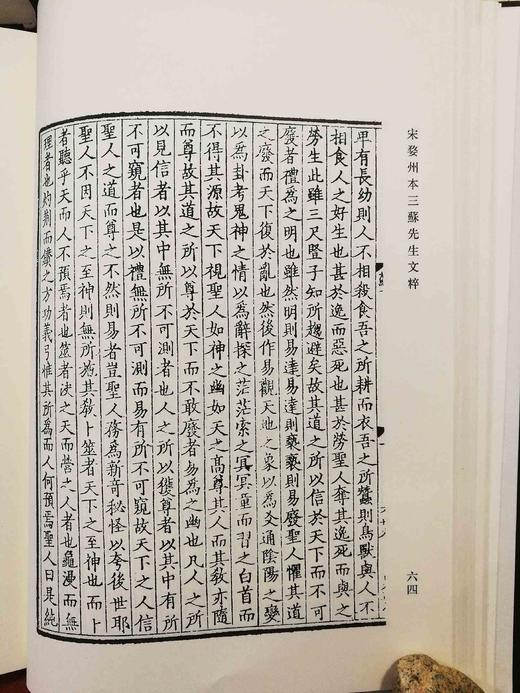 宋婺州本三蘇先生文粹
六四
卑有長幼則人不相殺食吾之所耕而衣吾之所蠶則鳥獸與人不
相食人之好生也甚於逸而惡死也甚於勞聖人奪其逸死而與之
勞生此雖三尺竪子知所趨避矣故其道之所以信於天下而不可
廢者禮為之明也雖然明則易達易達則褻褻則易廢聖人懼其道
之廢而天下復於亂也然後作易觀天地之象以為爻通陰陽之變
以為卦考鬼神之情以為辭探之茫茫索之冥冥童而習之白首而
不得其源故天下視聖人如神之幽如天之高尊其人而其敎亦隨
而尊故其道之所以尊於天下而不敢廢者易為之幽也凡人之所
以見信者以其中無所不可測者也人之所以獲尊者以其中有所
不可窺者也是以禮無所不可測而易有所不可窺故天下之人信
聖人之道而尊之不然則易者豈聖人務為新奇秘怪以夸後世耶
聖人不因天下之至神則無所施其敎卜筮者天下之至神也而卜
者聽乎天而人不預焉者也筮者決之天而營之人者也龜漫而無
理者也灼荊而鑽之方功義弓惟其所為而人何預焉聖人曰是純